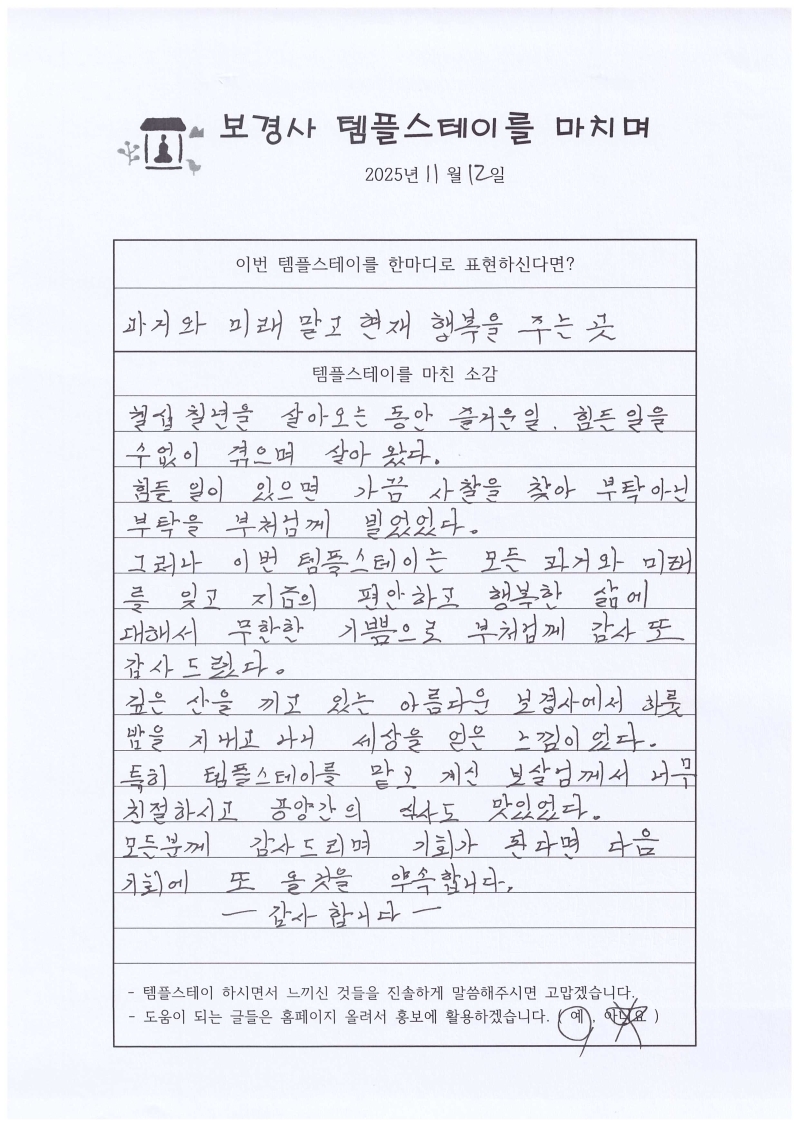 보경사 템플스테이를 마치며
2025년 11월 12일
이번 템플스테이를 한마디로 표현하신다면?
과거와 미래 말고 현재 행복을 주는 곳
템플스테이를 마친 소감
칠십 칠년을 살아오는 동안 즐거운일, 힘든일을
수없이 겪으며 살아 왔다.
힘든 일이 있으면 가끔 사찰을 찾아 부탁아닌
부탁을 부처님께 빌었었다.
그러나 이번 템플스테이는 모든 과거와 미래
를 잊고 지금의 편안하고 행복한 삶에
대해서 무한한 기쁨으로 부처님께 감사 또
감사드렸다.
깊은 산을 끼고 있는 아름다운 보경사에서 하룻
밤을 지내고 나니 세상을 얻은 느낌이었다.
특히 템플스테이를 맡고 계신 보살님께서 너무
친절하시고 공양간의 식사도 맛있었다.
모든분께 감사드리며 기회가 된다면 다음
기회에 또 올것을 약속합니다.
- 감사합니다 -
- 템플스테이 하시면서 느끼신 것들을 진솔하게 말씀해주시면 고맙겠습니다.
- 도움이 되는 글들은 홈페이지 올려서 홍보에 활용하겠습니다. ( 예 , 아니요 )